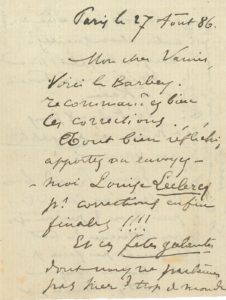 Paris le 27 Août 86.
Mon cher Vanier,
Voici le Barbey.
recommandez bien
les corrections.
Tout bien réfléchi,
apportez ou envoyez-
-moi Louise Leclercq
pr. corrections enfin
finales !!!!
Et ces Fêtes galantes
dont nous ne parlâmes
pas hier ? trop de monde